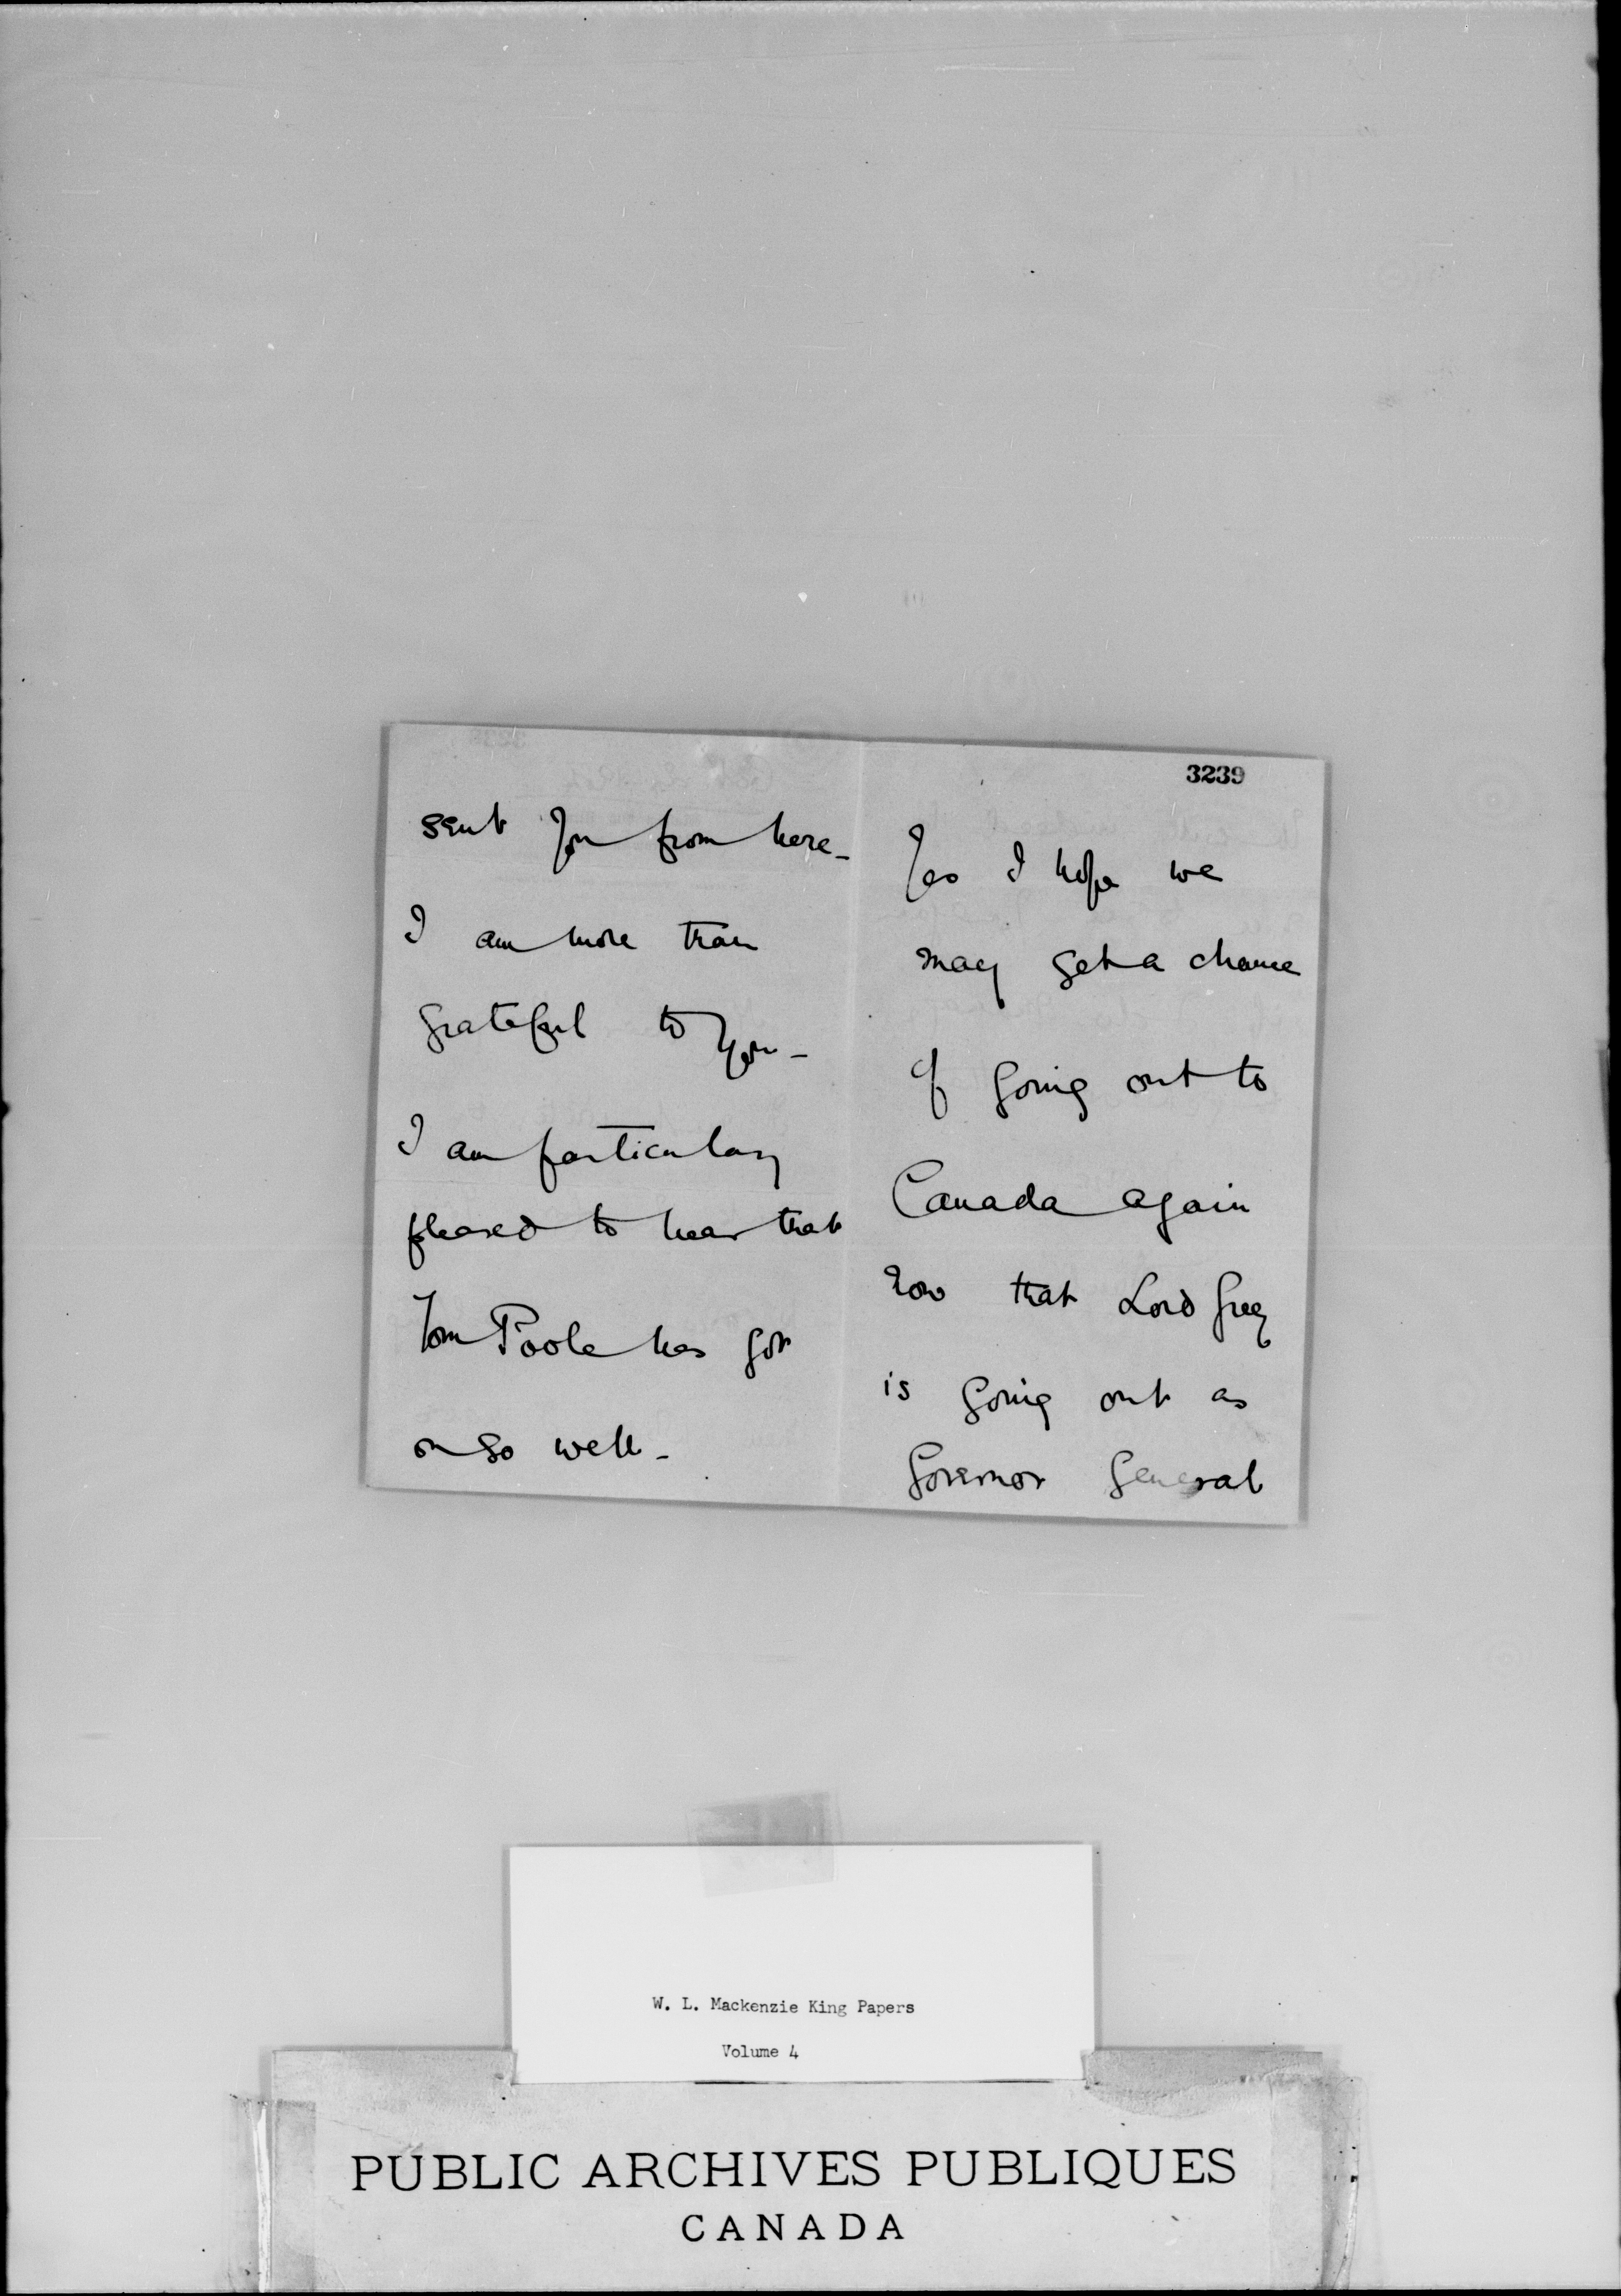 sent you from here -
I am more than
grateful to you -
I am particulary
pleased to hear that
Tom Poole has got
on so well -
3239
Yes I hope we
may get a chance
of going out to
Canada again
now that Lord Grey
is going out as
Governor General
W. L. Mackenzie King Papers
Volume 4
PUBLIC ARCHIVES PUBLIQUES
CANADA